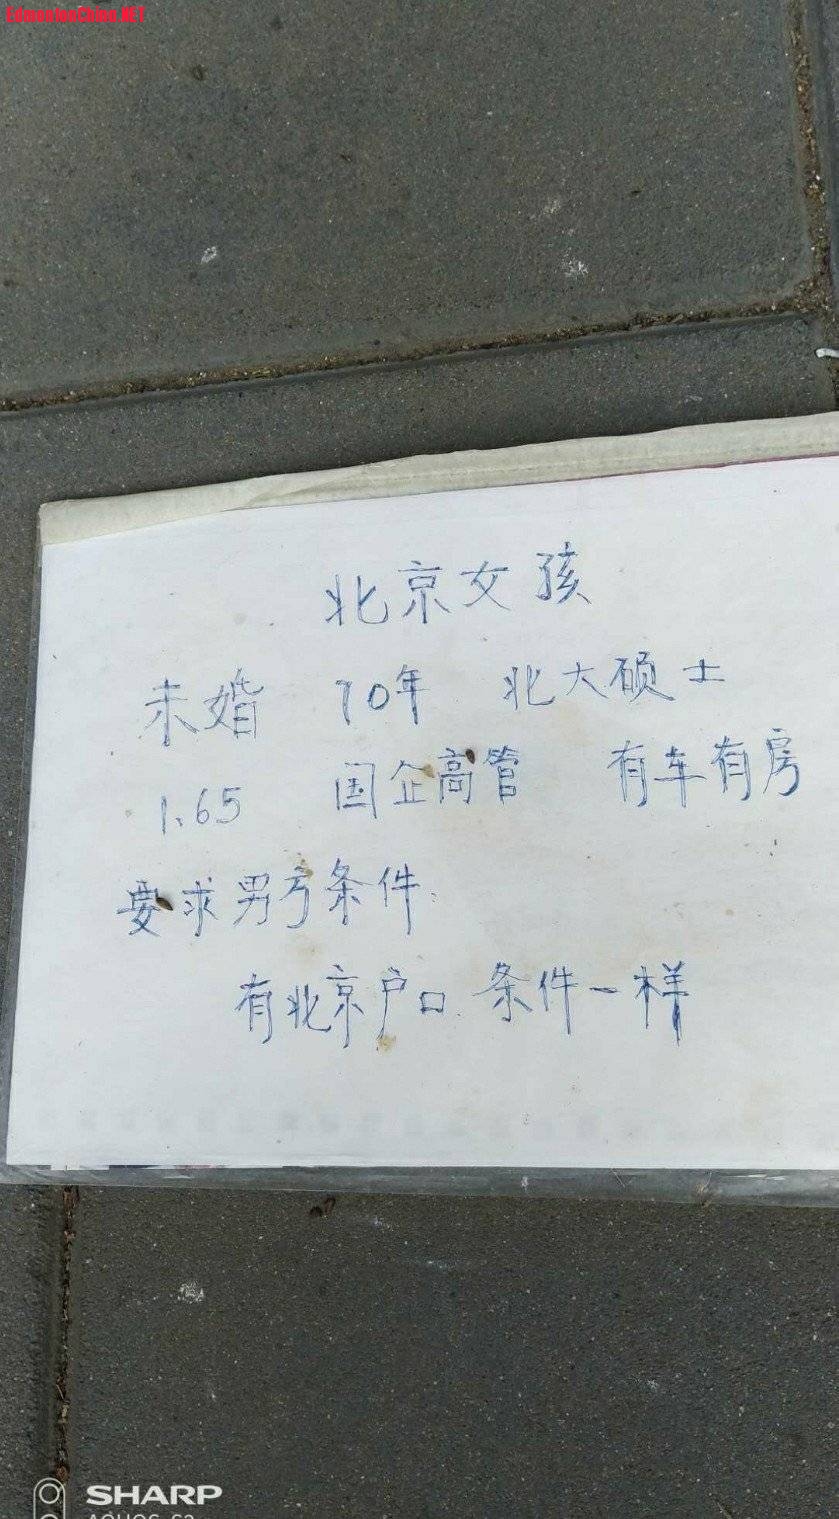 EdmontonChina.NET
北京女孩
未婚 70年 北大硕士
1.65 国企高管 有车有房
要求男方条件:
有北京户口.条件一样
SHARP